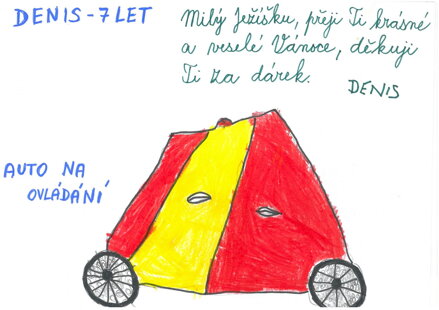 DENIS - 7 LET
Milý Ježíšku, přeji Ti krásné
a veselé Vánoce, děkuji
Ti za dárek.
DENIS
AUTO NA
OVLÁDÁNÍ